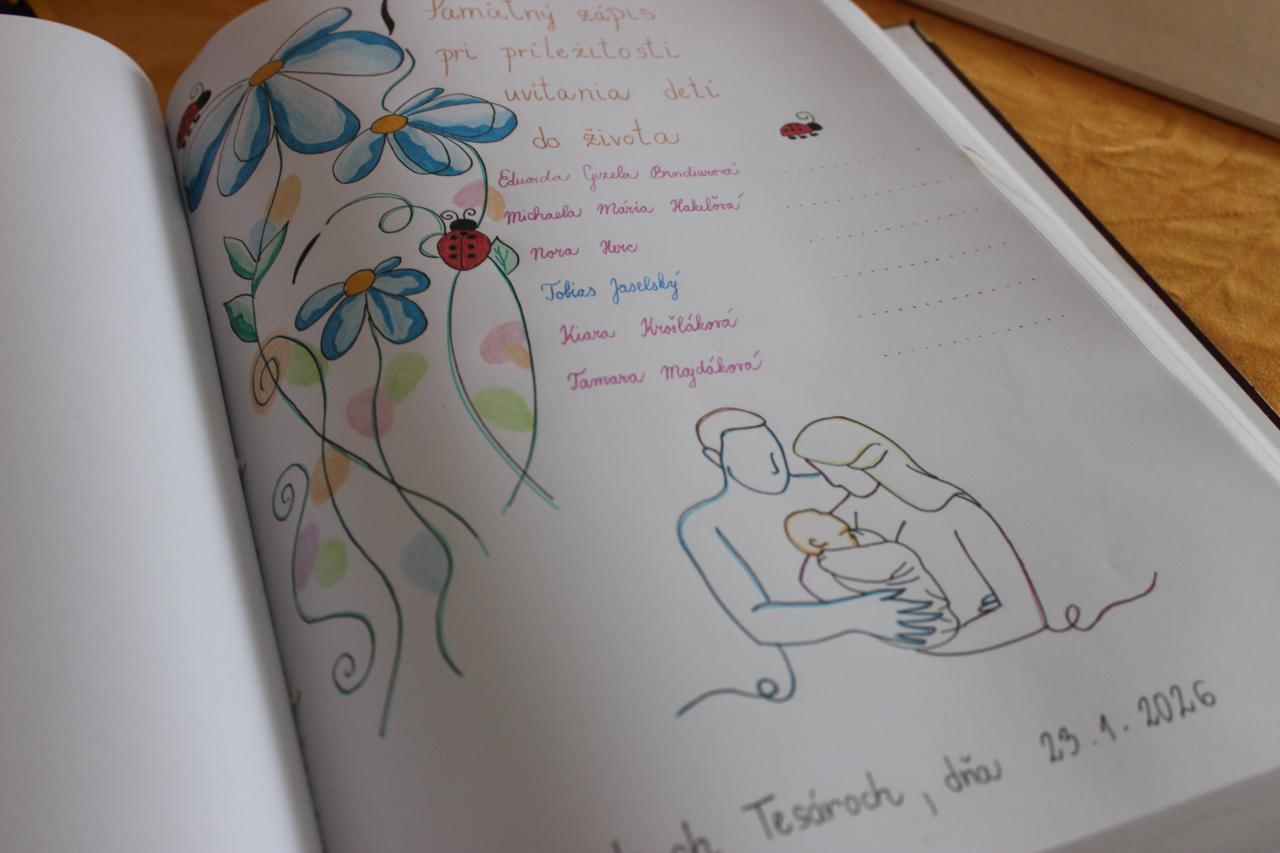 Pamätný zápis
pri príležitosti
uvítania detí
do života
Eduarda Gizela Brndiarová
Michaela Mária Hakeľová
Nora Herc
Tobias Jaselský
Kiara Krošláková
Tamara Majdáková
Tesároch, dňa 23.1.2026